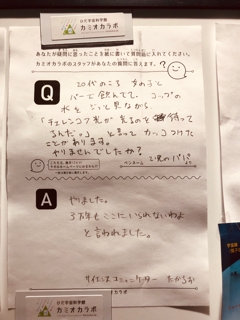 ひだ宇宙科学館
カミオカラボ
あなたが疑問に思ったことを紙に書いて質問箱に入れてください。
カミオカラボのスタッフがあなたの疑問に答えます。
Q
20代のころ 女の子と
バーで飲んでて、コップの
水をじっと見ながら
「チェレンコフ光が見えるのを待って
るんだ。」と言ってカッコつけた
ことがあります。
やりませんでしたか?
ペンネーム
二児のパパ
A
やりました。
3万年もここにいられないわよ
と言われました。
サイエンスコミュニケーター たかちお
カミオカラボ
ひだ宇宙科学館
カミオカラボ